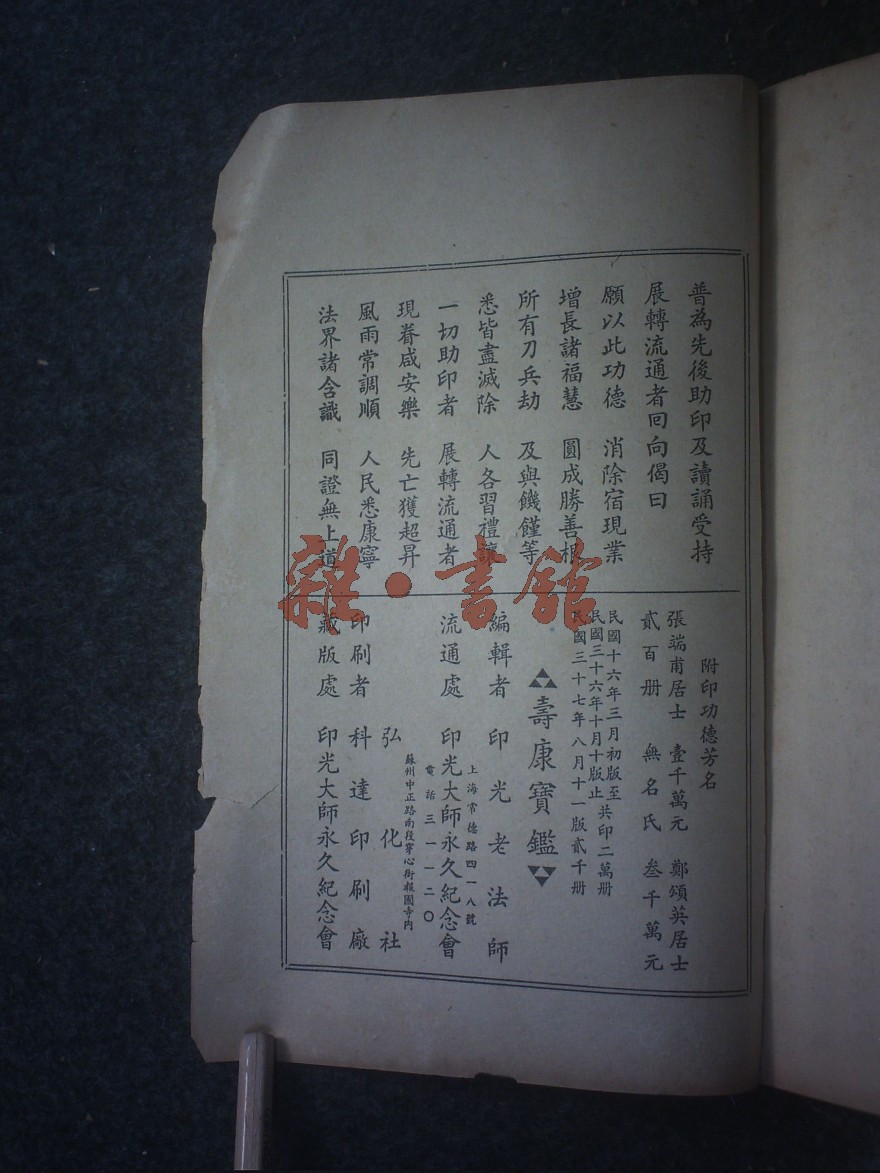 普為先後助印及讀誦受持
展轉流通者回向偈曰
願以此功德 消除宿現業
增長諸福慧 圓成勝善根
所有刀兵劫 及與饑饉等
悉皆盡滅除 人各習禮讓
一切助印者 展轉流通者
現眷咸安樂 先亡獲超昇
風雨常調順 人民悉康寧
法界諸含識 同證無上道
附印功德芳名
張端甫居士 壹千萬元 鄭頌英居士
貳百册 無名氏 叁千萬元
民國十六年三月初版至
民國三十六年十月十版止 共印二萬册
民國三十七年八月十一版貳千册
壽康寶鑑
編輯者 印光老法師
上海常德路四一八號
流通處 印光大師永久紀念會
電話三一一二〇
蘇州中正路南段穿心街報國寺內
弘化社
印刷者 科達印刷廠
藏版處 印光大師永久紀念會
雜·書館